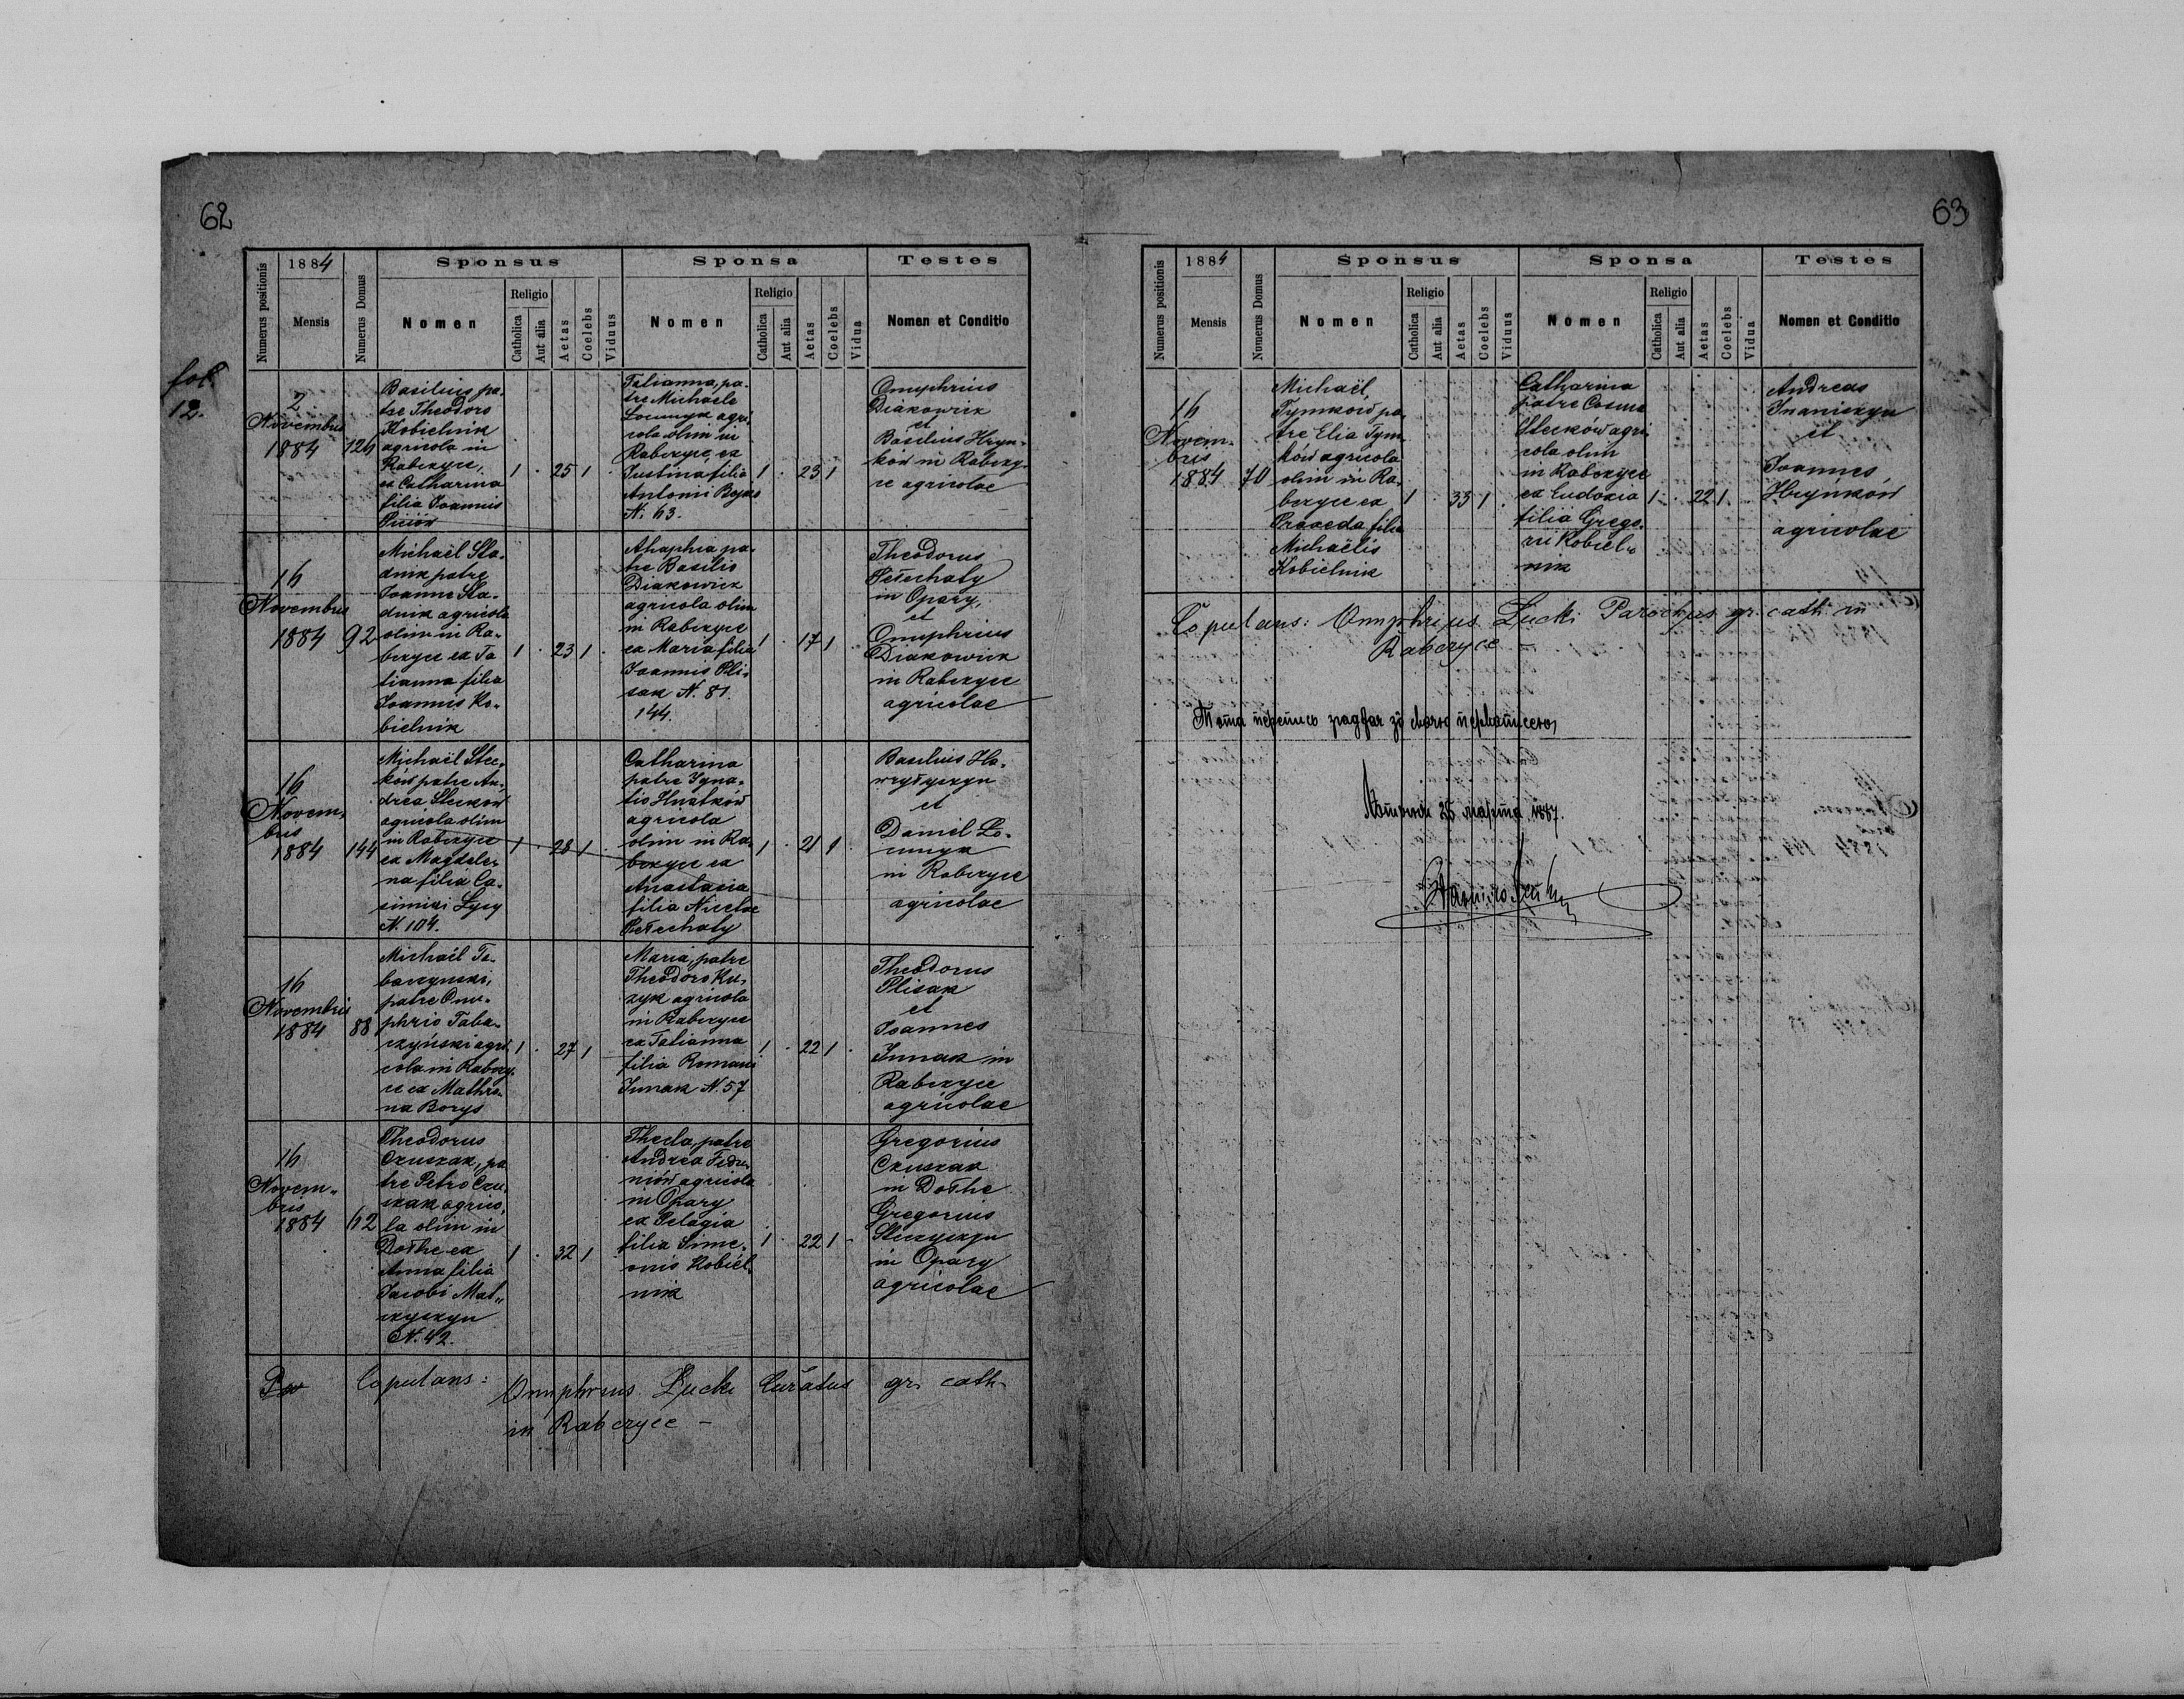 62
fol.
12.
Numerus positionis
1884
Mensis
Numerus Domus
Sponsus
Nomen
Religio
Catholica
Aut alia
Aetas
Coelebs
Viduus
Sponsa
Nomen
Religio
Catholica
Aut alia
Aetas
Coelebs
Vidua
Testes
Nomen et Conditio
2
Novembris
1884
126
Basilius pa-
tre Theodoro
Kobielnik
agricola in
Rabczyce,
ex Catharina
filia Joannis
1 . 25 1 .
Tatianna, pa-
tre Michaele
agri-
cola olim in
Rabczyce, ex
Justina filia
Antonii Bojko
N. 63.
1 . 23 1
Onuphrius
Diakowicz
et
Basilius Hryn-
ków in Rabczy-
ce agricolae
16
Novembris
1884
92
Michaël Sla-
dnik patre
Joanne Sla-
dnik agricola
olim in Ra-
bczyce ex Ta
tianna filia
Joannis Ko-
bielnik
1 . 23 1 .
Ahaphia pa-
tre Basilio
Diakowicz
agricola olim
in Rabczyce
ex Maria filia
Joannis Pli-
sak N. 81.
144.
1 . 17 1 .
Theodorus
Petechaty
in Opary,
et
Onuphrius
Diakowicz
in Rabczyce
agricolae
16
Novem-
bris
1884
144
Michaël Stec-
ków patre An-
drea Stecków
agricola olim
in Rabczyce
ex Magdale-
na filia Ca-
simiri Łysy
N. 104.
1 . 28 1 .
Catharina
patre Igna-
tio Hnatków
agricola
olim in Ra-
bczyce ex
Anastasia
filia Nicolae
Petechaty
1 . 21 1
Basilius Ha-
wryłyszyn
et
Daniel Lo-
in Rabczyce
agricolae
16
Novembris
1884
88
Michaël Ta-
baczynski,
patre Onu-
phrio Taba-
czyński agri-
cola in Rabczy-
ce ex Mathro-
na Borys
1 . 27 1
Maria, patre
Theodoro Ku-
zyk agricola
in Rabczyce
ex Tatianna
filia Romani
N. 57
1 . 22 1 .
Theodorus
Plisak
et
Joannes
in
Rabczyce
agricolae
16
Novem-
bris
1884
62
Theodorus
Czuszak, pa
tre Petro Czu-
szak agrico-
la olim in
Dołhe ex
Anna filia
Jacobi Mat-
N. 42.
1 . 32 1
Thecla, patre
Andrea Fedu-
niów agricola
in Opary
ex Pelagia
filia Sime-
onis Kobiel-
nik
1 . 22 1 -
Gregorius
Czuszak
in Dołhe
Gregorius
in Opary
agricolae
Copulans: Onuphrius Łucki Curatus gr. cath.
in Rabczyce –
63
Numerus positionis
1884
Mensis
Nomerus Domus
Sponsus
Nomen
Religio
Catholica
Aut alia
Aetas
Coelebs
Viduus
Sponsa
Nomen
Religio
Catholica
Aut alia
Aetas
Coelebs
Vidua
Testes
Nomen et Conditio
16
Novem-
bris
1884
70
Michaël,
Tymków pa-
tre Elia Tym-
ków agricola
olim in Ra-
bczyce ex
Praxeda filia
Michaëlis
Kobielnik
1 . 33 1 .
Catharina
patre Cosma
Stecków agri-
cola olim
in Rabczyce
ex Eudoxia
filia Grego-
rii Kobiel-
nik
1 . 22 1 .
Andreas
et
Joannes
Hryńków
agricolae
Copulans: Onuphrius Łucki Parochus gr. cath. in
Rabczyce –
25 марта 1887.